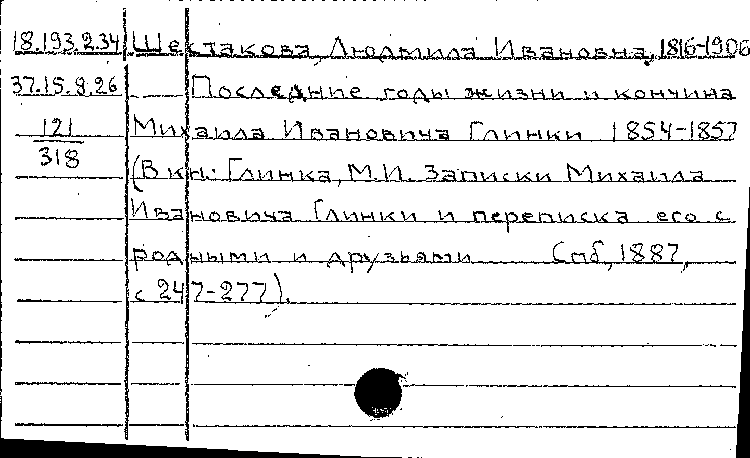 18.193.2.34 Шестакова, Людмила Ивановна, 1816-1906
37.15.8.26 Последние годы жизни и кончина
121 Михаила Ивановича Глинки 1854-1857
318
(В кн.: Глинка, М.И. Записки Михаила
Ивановича Глинки и переписка его с
родными и друзьями Спб, 1887,
с 247-277).